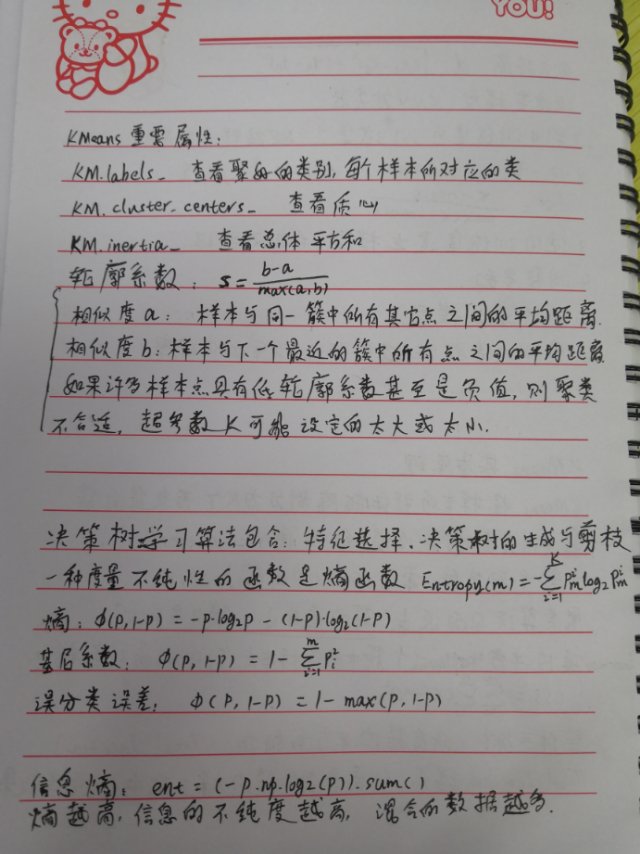 YOU!
KMeans 重要属性:
KM.labels_ 查看聚好的类别,每个样本所对应的类
KM.cluster_centers_ 查看质心
KM.inertia_ 查看总体平方和
轮廓系数: s = (b-a)/max(a,b)
相似度a: 样本与同一簇中所有其它点之间的平均距离.
相似度b: 样本与下一个最近的簇中所有点之间的平均距离
如果许多样本点具有低轮廓系数甚至是负值, 则聚类
不合适, 超参数K可能设定的太大或太小.
决策树学习算法包含: 特征选择、决策树的生成与剪枝
一种度量不纯性的函数是熵函数 Entropy(m) = -∑_{i=1}^{K} P_m^i log₂ P_m^i
熵: ϕ(P, 1-P) = -P·log₂P - (1-P)·log₂(1-P)
基尼系数: ϕ(P, 1-P) = 1 - ∑_{i=1}^{m} P_i^2
误分类误差: ϕ(P, 1-P) = 1 - max(P, 1-P)
信息熵: ent = (-P.np.log2(P)).sum()
熵越高, 信息的不纯度越高, 混合的数据越多.